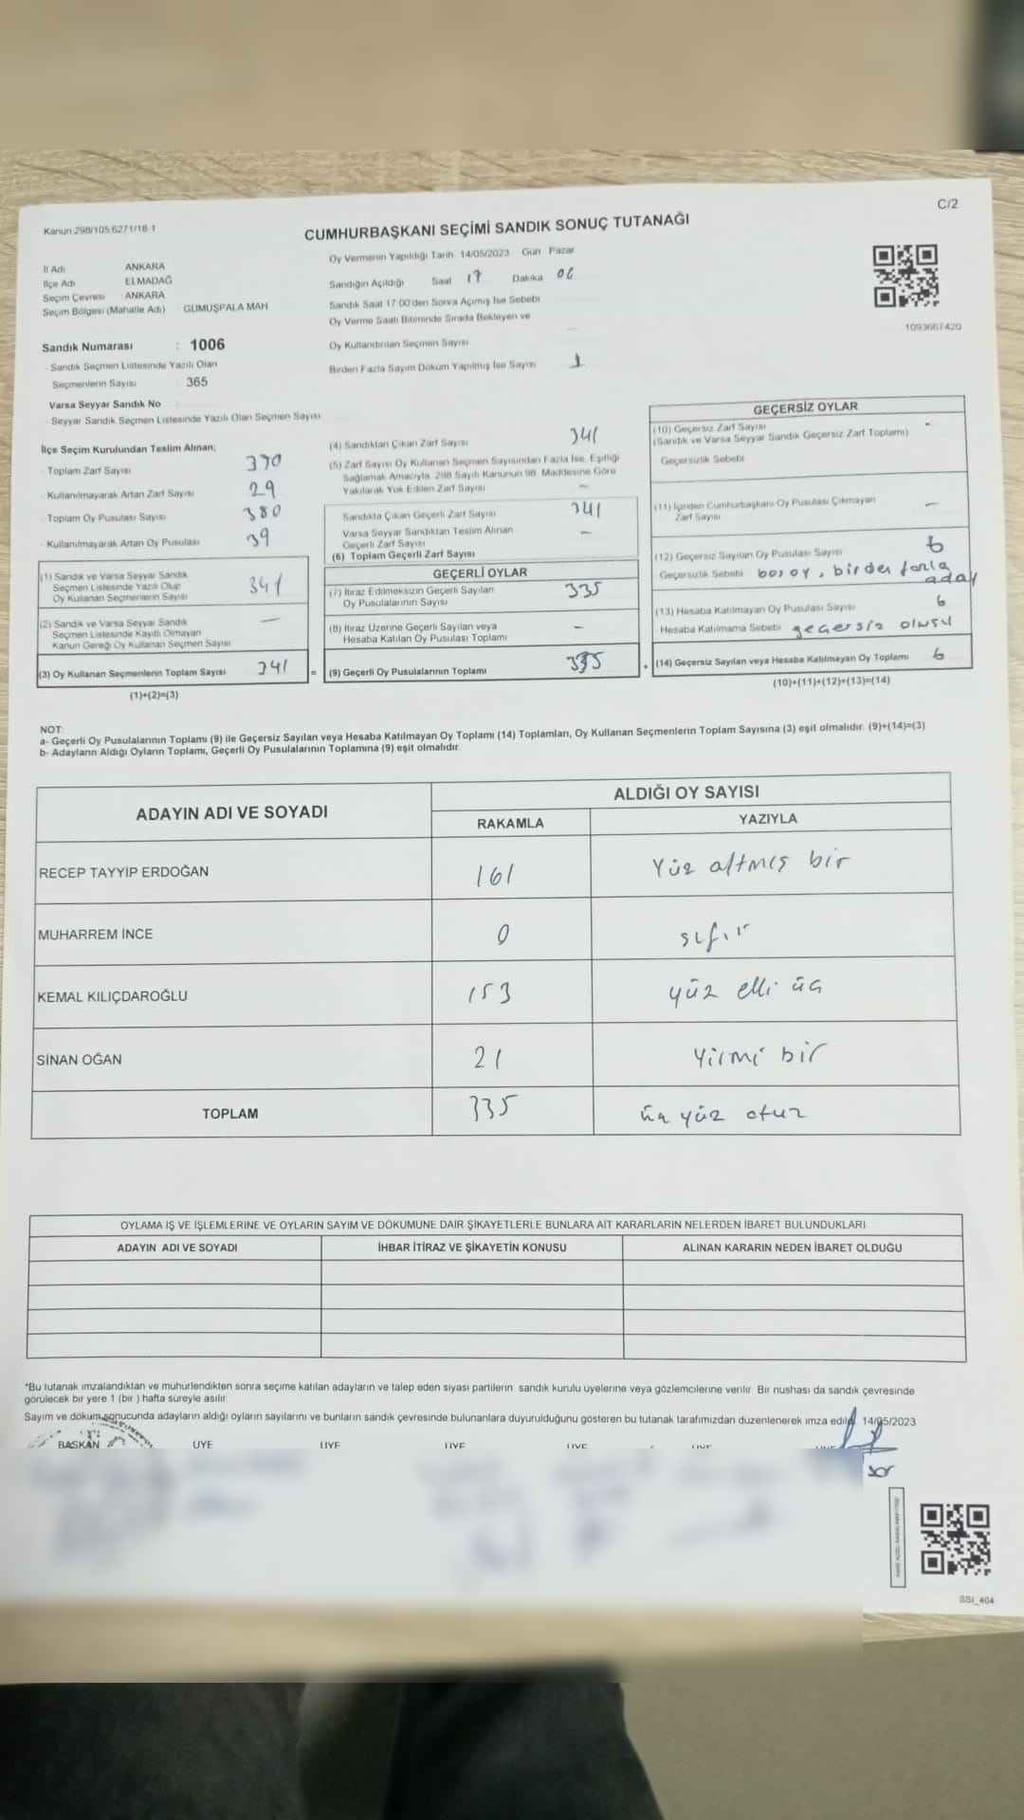 C/2
Kanun 298/105 6271/18-1
CUMHURBAŞKANI SEÇİMİ SANDIK SONUÇ TUTANAĞI
İl Adı ANKARA
İlçe Adı ELMADAĞ
Seçim Çevresi ANKARA
Seçim Bölgesi (Mahalle Adı) GÜMÜŞPALA MAH
Sandık Numarası : 1006
Sandık Seçmen Listesinde Yazılı Olan
Seçmenlerin Sayısı 365
Varsa Seyyar Sandık No
Seyyar Sandık Seçmen Listesinde Yazılı Olan Seçmen Sayısı
Oy Vermenin Yapıldığı Tarih 14/05/2023 Gün Pazar
Sandığın Açıldığı Saat 17 Dakika 06
Sandık Saat 17:00'den Sonra Açılmış İse Sebebi
Oy Verme Saati Bitiminde Sırada Bekleyen ve
Oy Kullandırılan Seçmen Sayısı
Birden Fazla Sayım Döküm Yapılmış İse Sayısı 1
1093667420
İlçe Seçim Kurulundan Teslim Alınan;
Toplam Zarf Sayısı 370
Kullanılmayarak Artan Zarf Sayısı 29
Toplam Oy Pusulası Sayısı 380
Kullanılmayarak Artan Oy Pusulası 39
(1) Sandık ve Varsa Seyyar Sandık
Seçmen Listesinde Yazılı Olup
Oy Kullanan Seçmenlerin Sayısı 341
(2) Sandık ve Varsa Seyyar Sandık
Seçmen Listesinde Kayıtlı Olmayan
Kanun Gereği Oy Kullanan Seçmen Sayısı –
(3) Oy Kullanan Seçmenlerin Toplam Sayısı 341
(1)+(2)=(3)
(4) Sandıktan Çıkan Zarf Sayısı 341
(5) Zarf Sayısı Oy Kullanan Seçmen Sayısından Fazla İse, Eşitliği
Sağlamak Amacıyla, 298 Sayılı Kanunun 98. Maddesine Göre
Yakılarak Yok Edilen Zarf Sayısı –
Sandıkta Çıkan Geçerli Zarf Sayısı 341
Varsa Seyyar Sandıktan Teslim Alınan
Geçerli Zarf Sayısı –
(6) Toplam Geçerli Zarf Sayısı
GEÇERLİ OYLAR
(7) İtiraz Edilmeksizin Geçerli Sayılan
Oy Pusulalarının Sayısı 335
(8) İtiraz Üzerine Geçerli Sayılan veya
Hesaba Katılan Oy Pusulası Toplamı –
= (9) Geçerli Oy Pusulalarının Toplamı 335
GEÇERSİZ OYLAR
(10) Geçersiz Zarf Sayısı -
(Sandık ve Varsa Seyyar Sandık Geçersiz Zarf Toplamı)
Geçersizlik Sebebi
(11) İçinden Cumhurbaşkanı Oy Pusulası Çıkmayan
Zarf Sayısı –
(12) Geçersiz Sayılan Oy Pusulası Sayısı 6
Geçersizlik Sebebi boş oy, birden fazla
aday
(13) Hesaba Katılmayan Oy Pusulası Sayısı 6
Hesaba Katılmama Sebebi geçersiz
+ (14) Geçersiz Sayılan veya Hesaba Katılmayan Oy Toplamı 6
(10)+(11)+(12)+(13)=(14)
NOT:
a- Geçerli Oy Pusulalarının Toplamı (9) ile Geçersiz Sayılan veya Hesaba Katılmayan Oy Toplamı (14) Toplamları, Oy Kullanan Seçmenlerin Toplam Sayısına (3) eşit olmalıdır. (9)+(14)=(3)
b- Adayların Aldığı Oyların Toplamı, Geçerli Oy Pusulalarının Toplamına (9) eşit olmalıdır
ADAYIN ADI VE SOYADI
ALDIĞI OY SAYISI
RAKAMLA YAZIYLA
RECEP TAYYİP ERDOĞAN 161 Yüz altmış bir
MUHARREM İNCE 0 sıfır
KEMAL KILIÇDAROĞLU 153 yüz elli üç
SİNAN OĞAN 21 Yirmi bir
TOPLAM 335 üç yüz otuz
OYLAMA İŞ VE İŞLEMLERİNE VE OYLARIN SAYIM VE DÖKÜMÜNE DAİR ŞİKAYETLERLE BUNLARA AİT KARARLARIN NELERDEN İBARET BULUNDUKLARI
ADAYIN ADI VE SOYADI İHBAR İTİRAZ VE ŞİKAYETİN KONUSU ALINAN KARARIN NEDEN İBARET OLDUĞU
*Bu tutanak imzalandıktan ve mühürlendikten sonra seçime katılan adayların ve talep eden siyasi partilerin sandık kurulu üyelerine veya gözlemcilerine verilir. Bir nüshası da sandık çevresinde
görülecek bir yere 1 (bir ) hafta süreyle asılır.
Sayım ve döküm sonucunda adayların aldığı oyların sayılarını ve bunların sandık çevresinde bulunanlara duyurulduğunu gösteren bu tutanak tarafımızdan düzenlenerek imza edildi. 14/05/2023
BAŞKAN ÜYE ÜYE ÜYE ÜYE
SSI_404